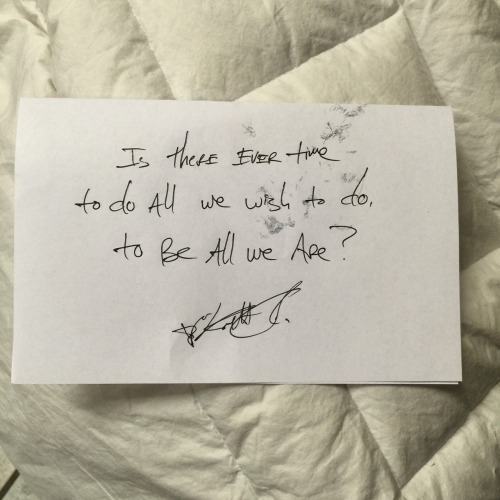 Is there ever time
to do all we wish to do,
to Be All we Are?